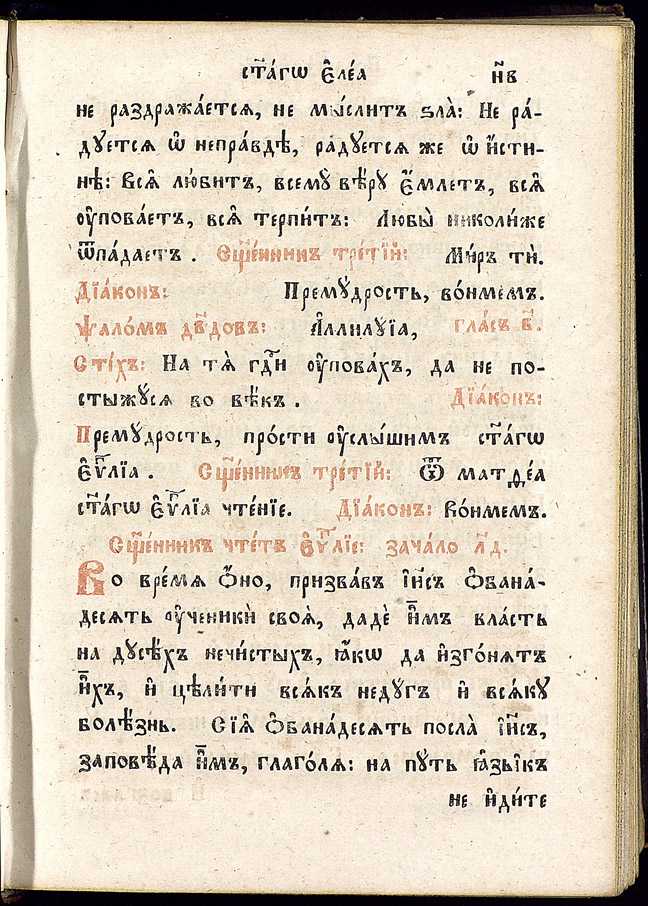 ст҃а́гѡ є҆ле́а н҃в
не раздража́етсѧ, не мы́слитъ ѕла̀: Не ра́-
дꙋетсѧ ѡ҆ непра́вдѣ, ра́дꙋетсѧ же ѡ҆ и҆́сти-
нѣ: Всѧ̑ лю́битъ, всемꙋ̀ вѣ́рꙋ є҆́млетъ, всѧ̑
ᲂу҆пова́етъ, всѧ̑ терпи́тъ: Любы̀ николи́же
ѿпа́даетъ. Сщ҃е́нникъ тре́тїй: Ми́ръ тѝ.
Дїа́конъ: Премꙋ́дрость, во́нмемъ.
ѱало́мъ дв҃довъ: А҆ллилꙋ́їа, гла́съ в҃.
Сті́хъ: На тѧ̀ гдⷭ҇и ᲂу҆пова́хъ, да не по-
стыжꙋ́сѧ во вѣ́къ. Дїа́конъ:
Премꙋ́дрость, про́сти ᲂу҆слы́шимъ ст҃а́гѡ
є҆ѵⷢ҇лїа. Сщ҃е́нникъ тре́тїй: Ѿ матѳе́а
ст҃а́гѡ є҆ѵⷢ҇лїа чте́нїе. Дїа́конъ: Во́нмемъ.
Сщ҃е́нникъ чте́тъ є҆ѵⷢ҇лїе: зача́ло л҃д.
Во вре́мѧ ѻ҆́но, призва́въ і҆и҃съ ѻ҆бана́-
десѧть ᲂу҆чєникѝ своѧ̀, дадѐ и҆̀мъ вла́сть
на дꙋсѣ́хъ нечи́стыхъ, ꙗ҆́кѡ да и҆зго́нѧтъ
и҆̀хъ, и҆ цѣли́ти всѧ́къ недꙋ́гъ и҆ всѧ́кꙋ
болѣ́знь. Сїѧ̑ ѻ҆бана́десѧть посла̀ і҆и҃съ,
заповѣ́да и҆̀мъ, глаго́лѧ: на пꙋ́ть ꙗ҆зы̑къ
не и҆ди́те